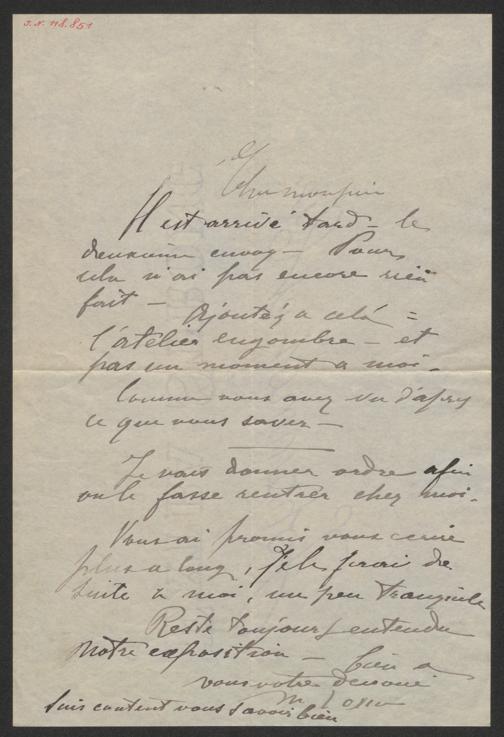 J.N. 118.851
Cher monsieur
Il est arrivé tard – le
deuxieme envoy – Pour
cela n'ai pas encore rien
fait – Ajoutéz a cela =
l'atélier engombre – et
pas un moment a moi.
Comme vous avez vu d'apres
ce que vous savez –
Je vais donner ordre afin
on le fasse rentrer chez moi.
Vous ai promis vous ecrire
plus a long, je le ferai de
suite a moi, un peu tranquile
Reste toujours entendu
Notre exposition – bien a
vous votre devoué
M Rosso
Suis content vous savoir bien